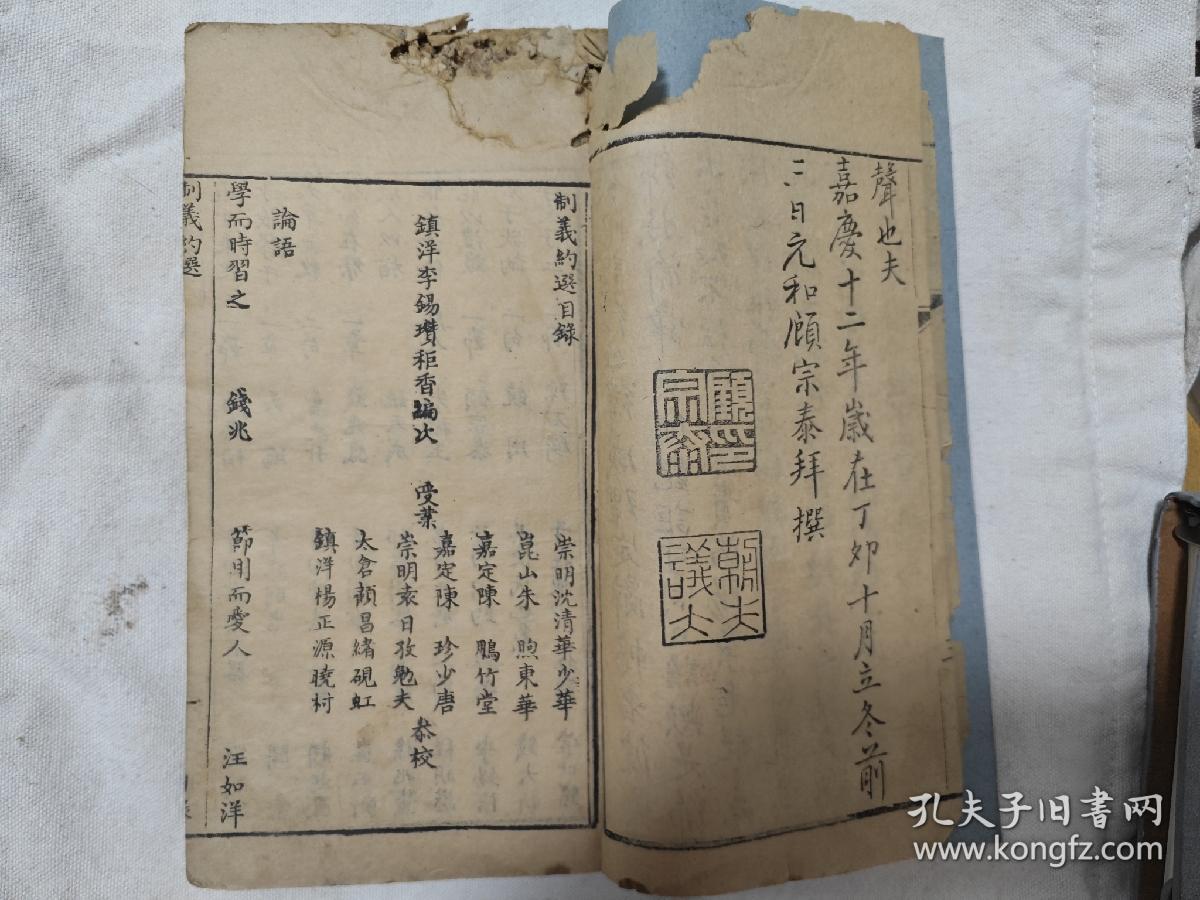 聲也夫
嘉慶十二年歲在丁卯十月立冬前
三日元和顧宗泰拜撰
顧宗泰印
朝議大夫
制義約選目錄
鎮洋李錫瓚秬香編次
受業
崇明沈清華少華
崑山朱煦東華
嘉定陳鵬竹堂
嘉定陳珍少唐
崇明袁日孜勉夫
太倉顏昌緒硯虹
鎮洋楊正源曉村
恭校
論語
學而時習之 錢兆 節用而愛人 汪如洋
制義約選
孔夫子旧书网
www.kongfz.com